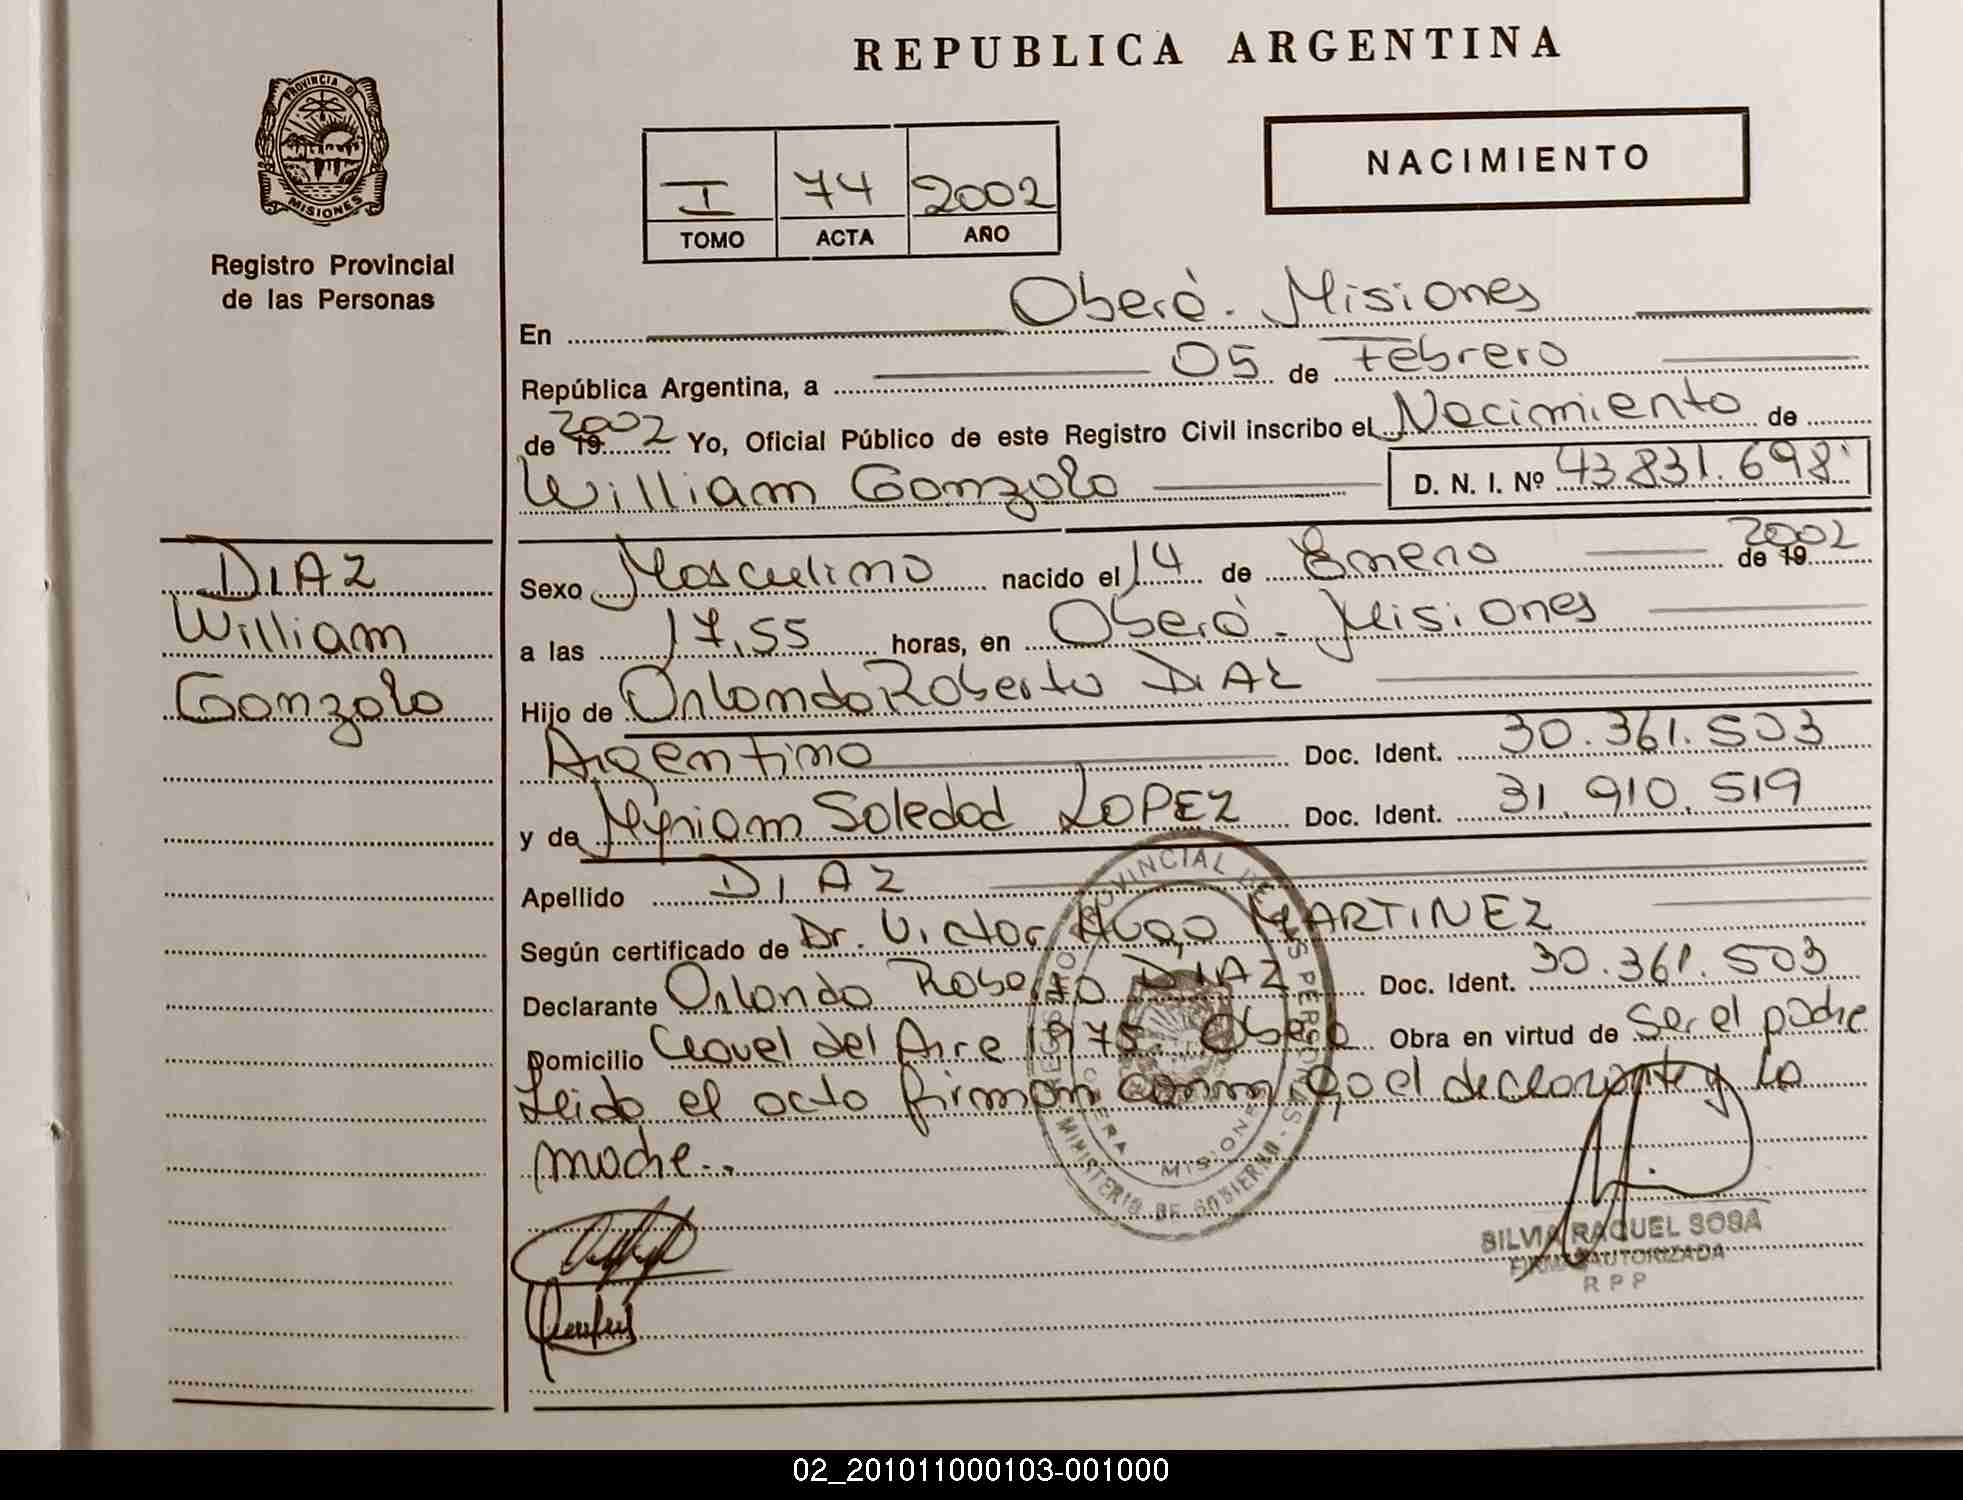 REPUBLICA ARGENTINA
PROVINCIA D
MISIONES
Registro Provincial
de las Personas
I 74 2002
TOMO ACTA AÑO
NACIMIENTO
En Oberá - Misiones
República Argentina, a 05 de Febrero
de 19 2002 Yo, Oficial Público de este Registro Civil inscribo el Nacimiento de
William Gonzalo D. N. I. Nº 43.831.698
DIAZ
William
Gonzalo
Sexo Masculino nacido el 14 de Enero de 19 2002
a las 17,55 horas, en Oberá - Misiones
Hijo de Orlando Roberto DIAZ
Argentino Doc. Ident. 30.361.503
y de Myriam Soledad LOPEZ Doc. Ident. 31.910.519
Apellido DIAZ
Según certificado de Dr. Victor Hugo MARTINEZ
Declarante Orlando Roberto DIAZ Doc. Ident. 30.361.503
Domicilio Clavel del Aire 1975. Oberá Obra en virtud de Ser el padre
Leido el acto firman conmigo el declarante y la
madre..
MINISTERIO DE GOBIERNO
MISIONES
SILVIA RAQUEL SOSA
FIRMA AUTORIZADA
R P P
02_201011000103-001000